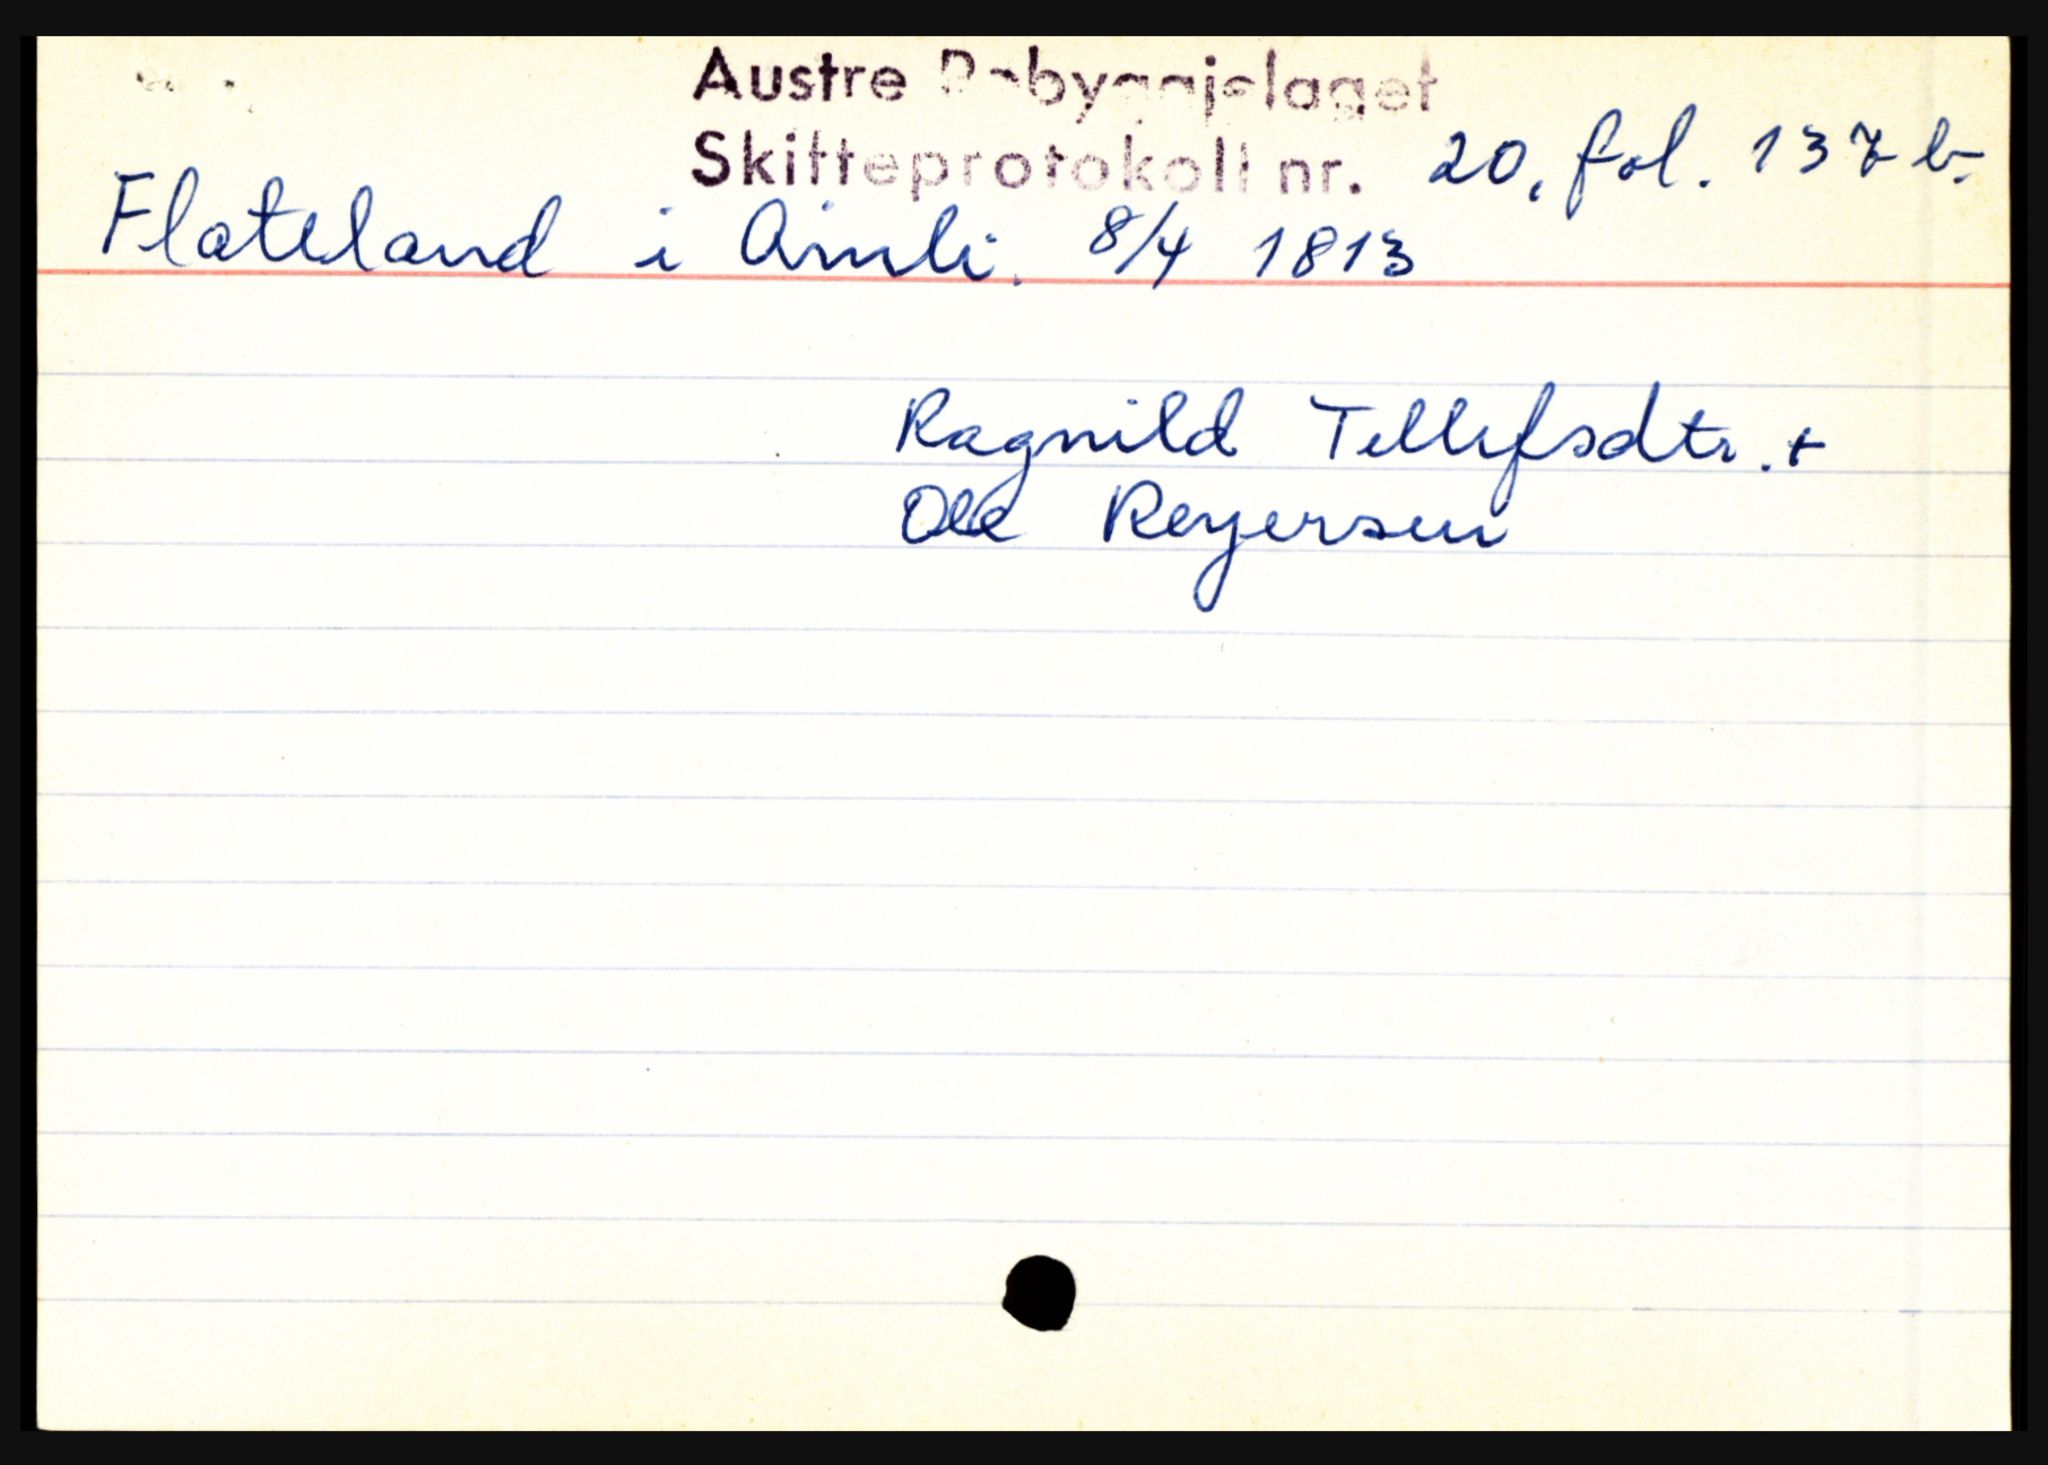 Austre Robyggjelaget
Skifteprotokoll nr. 20, fol. 137 b.
Flateland i Åmli. 8/4 1813
Ragnild Tellefsdtr. +
Ole Reyersen